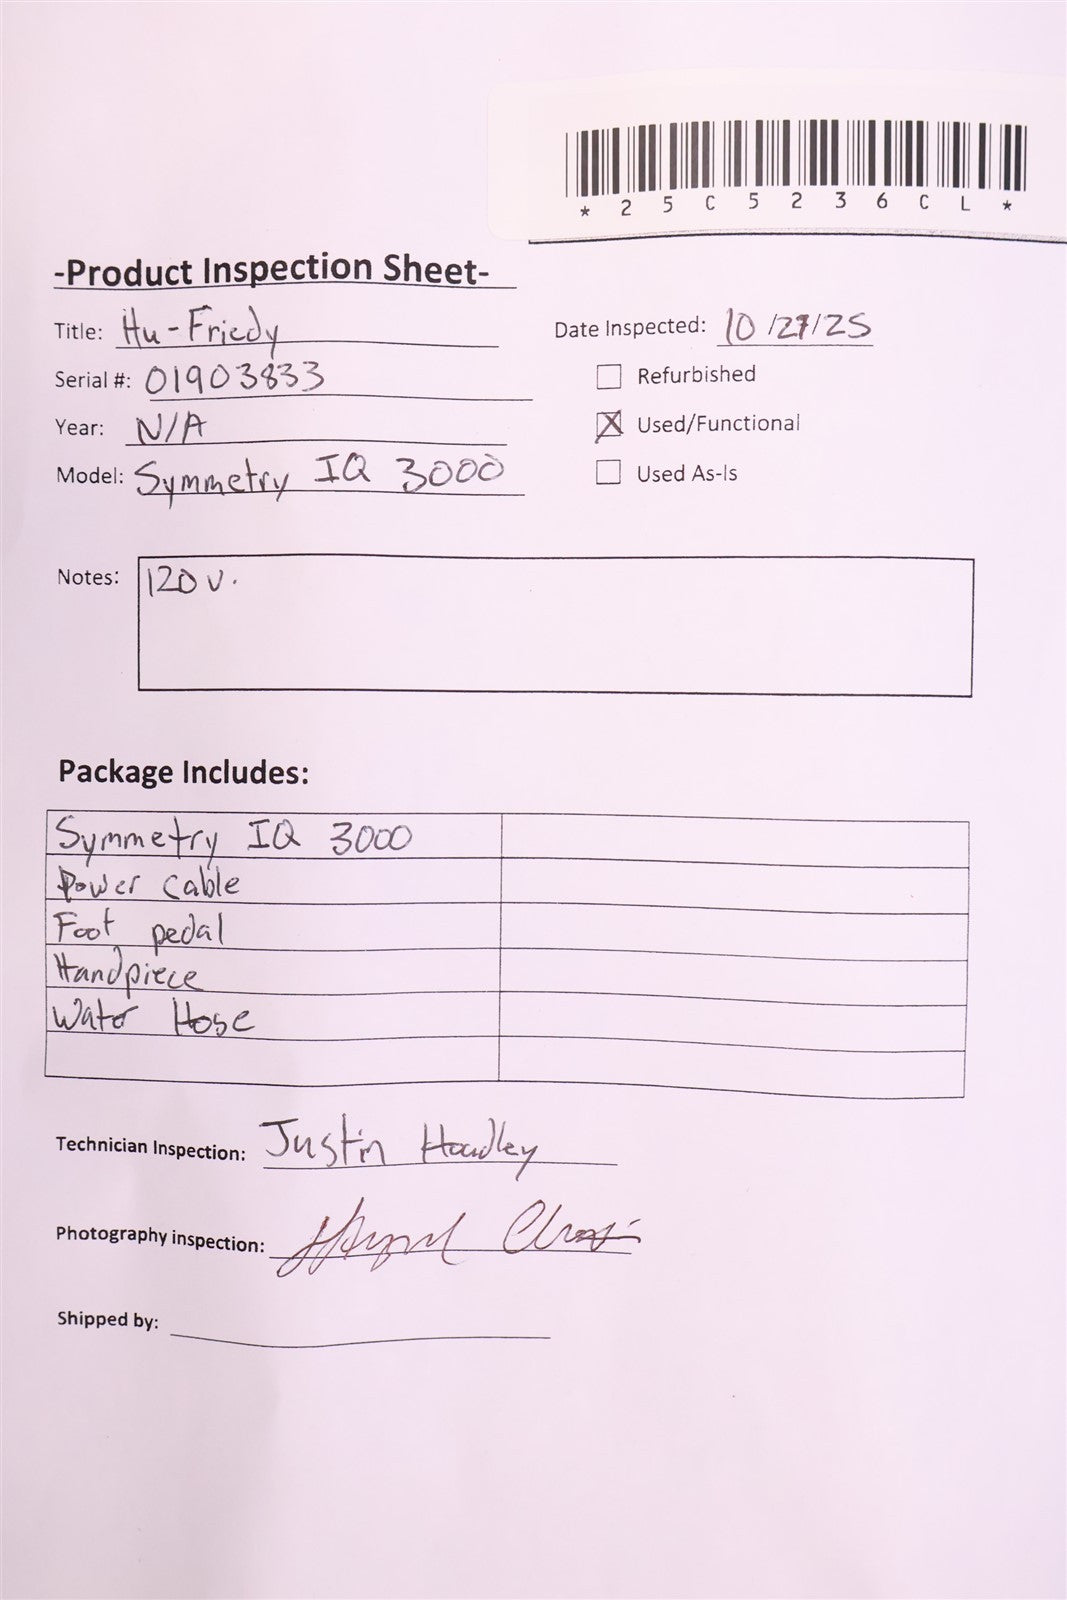 * 2 5 C 5 2 3 6 C L *
-Product Inspection Sheet-
Title: Hu-Friedy
Date Inspected: 10/27/25
Serial #: 01903833
Refurbished
Year: N/A
Used/Functional
Model: Symmetry IQ 3000
Used As-Is
Notes: 120 v.
Package Includes:
Symmetry IQ 3000
Power cable
Foot pedal
Handpiece
Water Hose
Technician Inspection: Justin Hoadley
Photography inspection:
Shipped by: